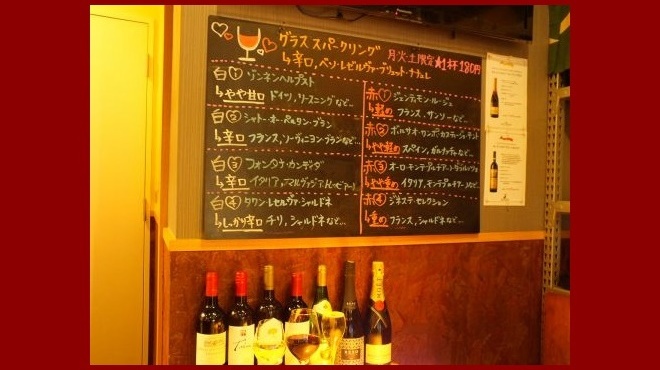 グラス スパークリング
月・火・土限定 ★1杯180円
↳辛口、ベソ・レゼルヴァ・ブリュット・ナチュレ
白① ゾンネンヘルプスト
↳やや甘口 ドイツ、リースニング など…
白② シャトー・オー・
↳辛口 フランス、ソーヴィニヨンブラン など…
白③ フォンタナ・カンディダ
↳辛口 イタリア、マルヴァジア
白④ タワン・レセルヴァ・シャルドネ
↳しっかり辛口 チリ、シャルドネ など…
赤①
↳軽め フランス、サンソー など…
赤② ボルサオ・カンポ・
↳やや軽め スペイン、ガルナッチャ など…
赤③
↳やや重め イタリア、モンテプルチアーノ など…
赤④ ジネステ・セレクション
↳重め フランス、シャルドネ など…